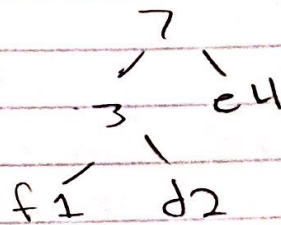 7
3 e4
f1 d2